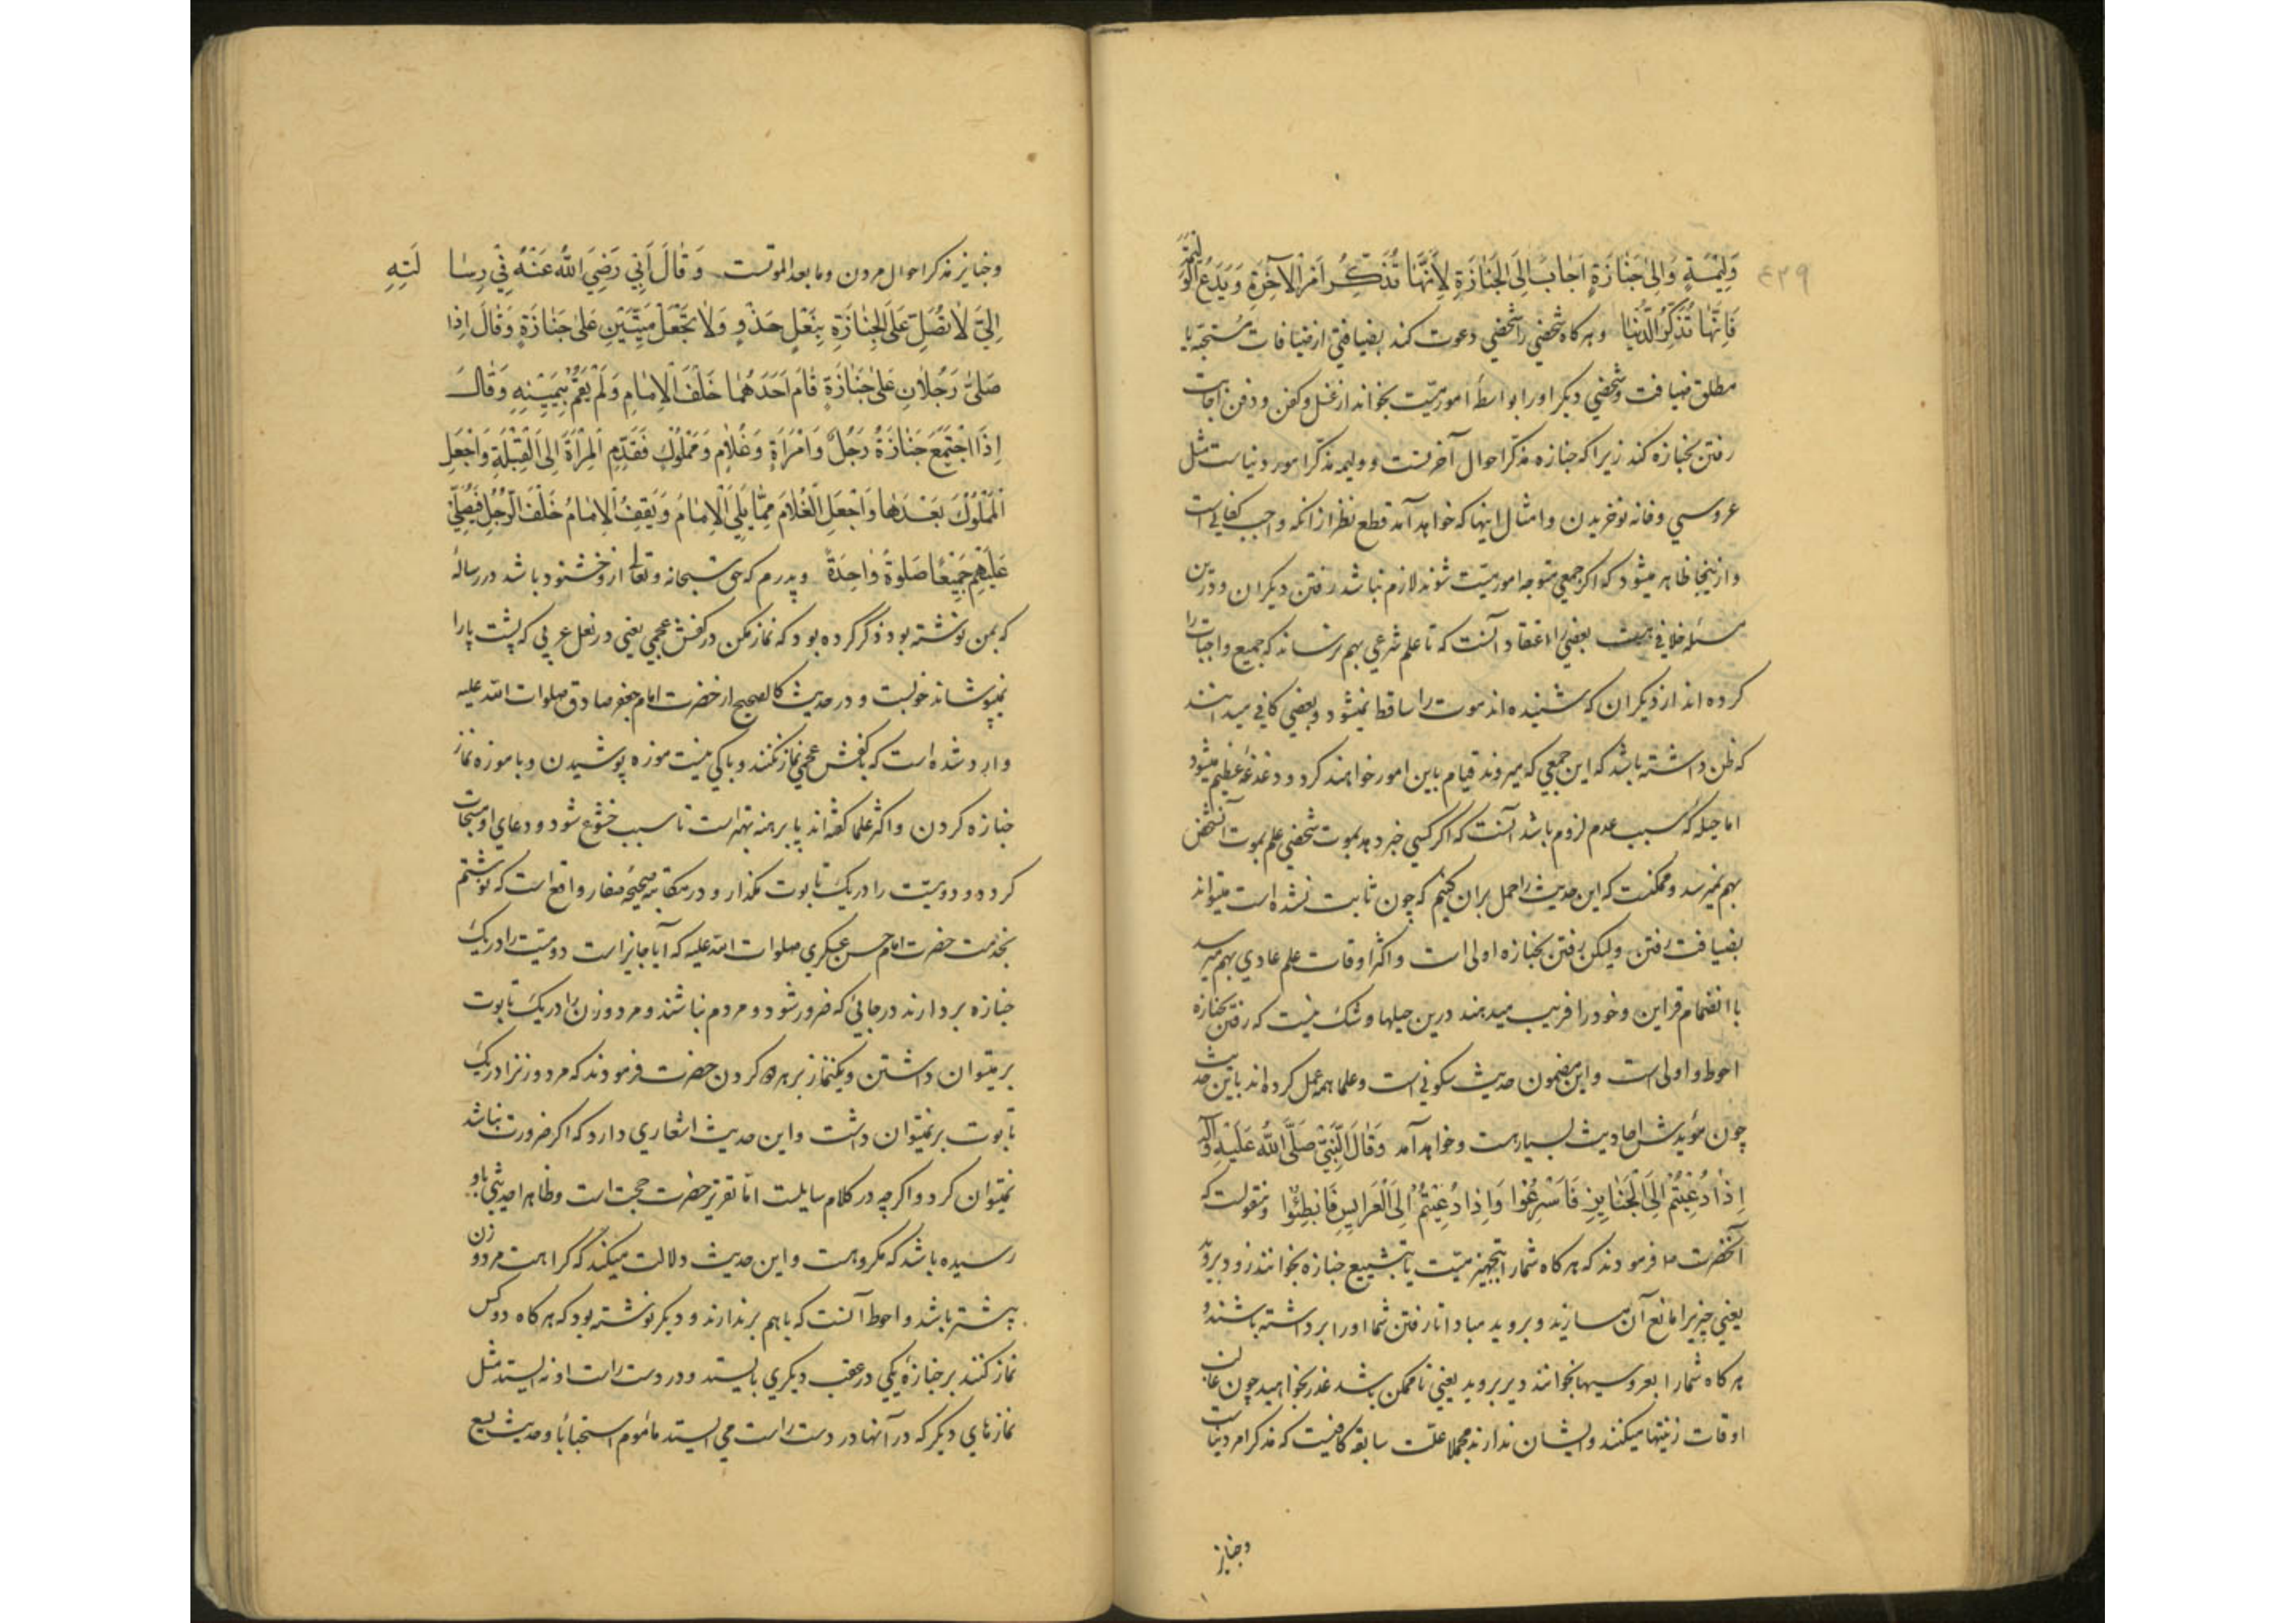 ٤٣٩
وَلِيْمَةٍ وَاِلىٰ جَنٰازَةٍ اَجٰابَ اِلَى الْجَنٰازَةِ لِاَنَّهٰا تُذَكِّرُ اَمْرَ الْآخِرَةِ وَيَدَعُ الْوَلِيْمَةَ
فَاِنَّهٰا تُذَكِّرُ الدُّنْيٰا وهر كاه شخصي را شخصي دعوت كند بضيافتي از ضيافات مستحبّه يا
مطلق ضيافت وشخصي ديكر اورا بواسطهٔ امور ميّت بخواند از غسل وكفن ودفن اجابت
رفتن بجنازه كند زيرا كه جنازه مذكّر احوال آخرتست ووليمه مذكّر امور دنياست مثل
عروسي وخانه نو خريدن وامثال اينها كه خواهد آمد قطع نظر از انكه واجب كفائي است
واز ينجا ظاهر ميشود كه اكر جمعي متوجه امور ميّت شوند لازم نباشد رفتن ديكران ودرين
مسئله خلافي هست بعضي را اعتقاد آنست كه تا علم شرعي بهم نرساند كه جميع واجبات را
كرده اند از ديكران كه شنيده اند موت را ساقط نميشود وبعضي كافي ميدانند
كه ظن داشته باشد كه اين جمعي كه ميروند قيام باين امور خواهند كرد ودغدغهٔ عظيم ميشود
اما حيله كه سبب عدم لزوم باشد آنست كه اكر كسي خبر دهد بموت شخصي علم بموت آنشخص
بهم نميرسد وممكنست كه اين حديث را حمل بران كنيم كه چون ثابت نشده است ميتواند
بضيافت رفتن وليكن رفتن بجنازه اولى است واكثر اوقات علم عادي بهم ميرسد
با انضمام قراين وخود را فريب ميدهند درين حيلها وشك نيست كه رفتن بجنازه
احوط واولى است واين مضمون حديث سكوني است وعلما همه عمل كرده اند باين حديث
چون مؤيدش احاديث بسيار هست وخواهد آمد وَقٰالَ النَّبِيُّ صَلَّى اللّٰهُ عَلَيْهِ وَآلِهِ
اِذٰا دُعِيْتُمْ اِلَى الْجَنٰايِزِ فَاَسْرِعُوا وَاِذٰا دُعِيْتُمْ اِلَى الْعَرٰايِسِ فَاَبْطِئُوا ومنقولست كه
آنحضرت ص فرمودند كه هر كاه شما را بتجهيز ميّت يا بتشييع جنازه بخوانند زود برويد
يعني چيزيرا مانع آن مسازيد وبرويد مبادا تا رفتن شما اورا برداشته باشند و
هر كاه شما را بعروسيها بخوانند دير برويد يعني تا ممكن باشد عذر بخواهيد چون غالب
اوقات زينتها ميكنند وايشان ندارند مجملا علّت سابقه كافيست كه مذكر امر دنياست
وجنايز
وجنايز مذكر احوال مردن وما بعد الموتست وَقٰالَ اَبِي رَضِيَ اللّٰهُ عَنْهُ فِي رِسٰالَتِهِ
اِلَيَّ لاٰ تُصَلِّ عَلَى الْجِنٰازَةِ بِنَعْلِ حَذْوٍ وَلاٰ تَجْعَلْ مَيِّتَيْنِ عَلىٰ جَنٰازَةٍ وَقٰالَ اِذٰا
صَلىّٰ رَجُلاٰنِ عَلىٰ جَنٰازَةٍ قٰامَ اَحَدَهُمٰا خَلْفَ الْاِمٰامِ وَلَمْ يَقُمْ بِيَمِيْنِهِ وَقٰالَ
اِذَا اجْتَمَعَ جَنٰازَةُ رَجُلٍ وَامْرَاَةٍ وَغُلاٰمٍ وَمَمْلُوْكٍ فَقَدِّمِ الْمِرْاَةَ اِلَى الْقِبْلَةِ وَاجْعَلِ
الْمَمْلُوْكَ بَعْدَهٰا وَاجْعَلِ الْغُلاٰمَ مِمّٰا يَلِي الْاِمٰامَ وَيَقِفُ الْاِمٰامُ خَلْفَ الرَّجُلِ فَيُصَلّيِ
عَلَيْهِمْ جَمِيْعًا صَلوٰةً وٰاحِدَةً وپدرم كه حق سبحانه وتعالى ازو خشنود باشد در رسالهٔ
كه بمن نوشته بود ذكر كرده بود كه نماز مكن در كفش عجمي يعني در نعل عربي كه پشت پا را
نمپوشاند خوبست ودر حديث كالصحيح از حضرت امام جعفر صادق صلوات الله عليه
وارد شده است كه با كفش عجمي نماز نكنند وباكي نيست موزه پوشيدن وبا موزه نماز
جنازه كردن واكثر علما كفته اند پا برهنه بهتر است تا سبب خشوع شود ودعاي او مستجاب
كردد ودو ميّت را در يك تابوت مكذار ودر مكاتبهٔ صحيحهٔ صفار واقع است كه نوشتم
بخدمت حضرت امام حسن عسكري صلوات الله عليه كه آيا جايز است دو ميّت را در يك
جنازه بردارند در جائي كه ضرور شود ومردم نباشند ومرد وزن را در يك تابوت
بر ميتوان داشتن ويكنماز بر هر دو كردن حضرت فرمودند كه مرد وزنرا در يك
تابوت بر نميتوان داشت واين حديث اشعاري دارد كه اكر ضرورت نباشد
نميتوان كرد واكرچه در كلام سايلست امّا تقرير حضرت حجت است وظاهرا حديثي باو
رسيده باشد كه مكروهست واين حديث دلالت ميكند كه كراهت مرد وزن
بيشتر باشد واحوط آنست كه با هم برندارند وديكر نوشته بود كه هر كاه دو كس
نماز كنند بر جنازهٔ يكي در عقب ديكري بايستد ودر دست راست او نه ايستد مثل
نمازهاي ديكر كه در آنها در دست راست مي ايستد ماموم استحبابا وحديث يسع